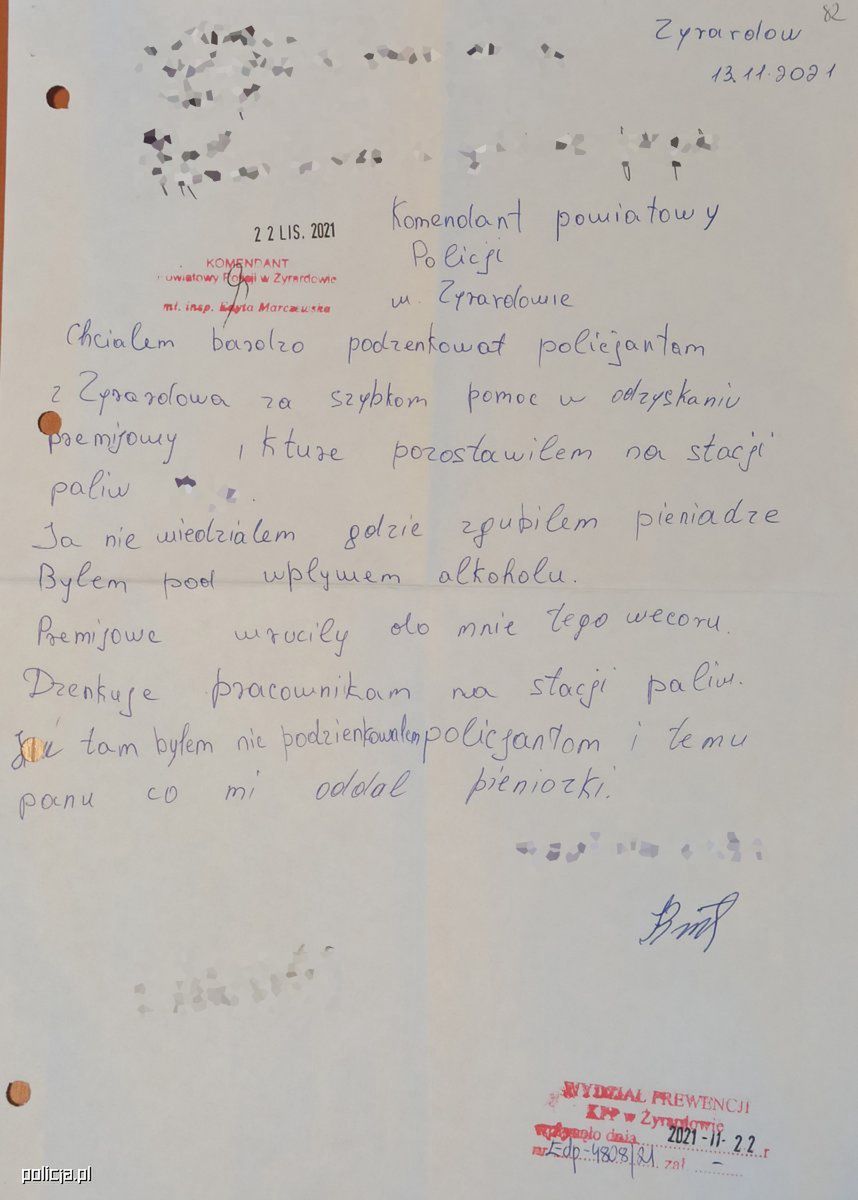 82
Zyrardow
13.11.2021
Komendant powiatowy
Policji
w. Zyrardowie
22 LIS. 2021
KOMENDANT
owiatowy Policji w Żyrardowie
mł. insp. Edyta Marczewska
Chcialem bardzo podzenkował policjantam
z Zyrardowa za szybkom pomoc w odzyskaniu
premijowy, kture pozostawilem na stacji
paliw .
Ja nie wiedzialem gdzie zgubilem pieniadze
Bylem pod wplywem alkoholu.
Premijowe wrucily do mnie tego wecoru.
Dzenkuje pracownikam na stacji paliw.
tam byłem nie podzienkowałem policjantom i temu
panu co mi oddal pieniozki.
WYDZIAŁ PREWENCJI
KPP w Żyrardowie
wpłynęło dnia 2021 -11- 22 r
nr Edp-4808/21 zał -
policja.pl